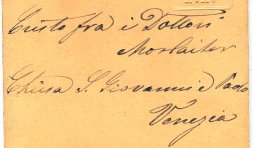 Cristo fra i Dottori
Morlaiter
Chiesa S. Giovanni e Paolo
Venezia